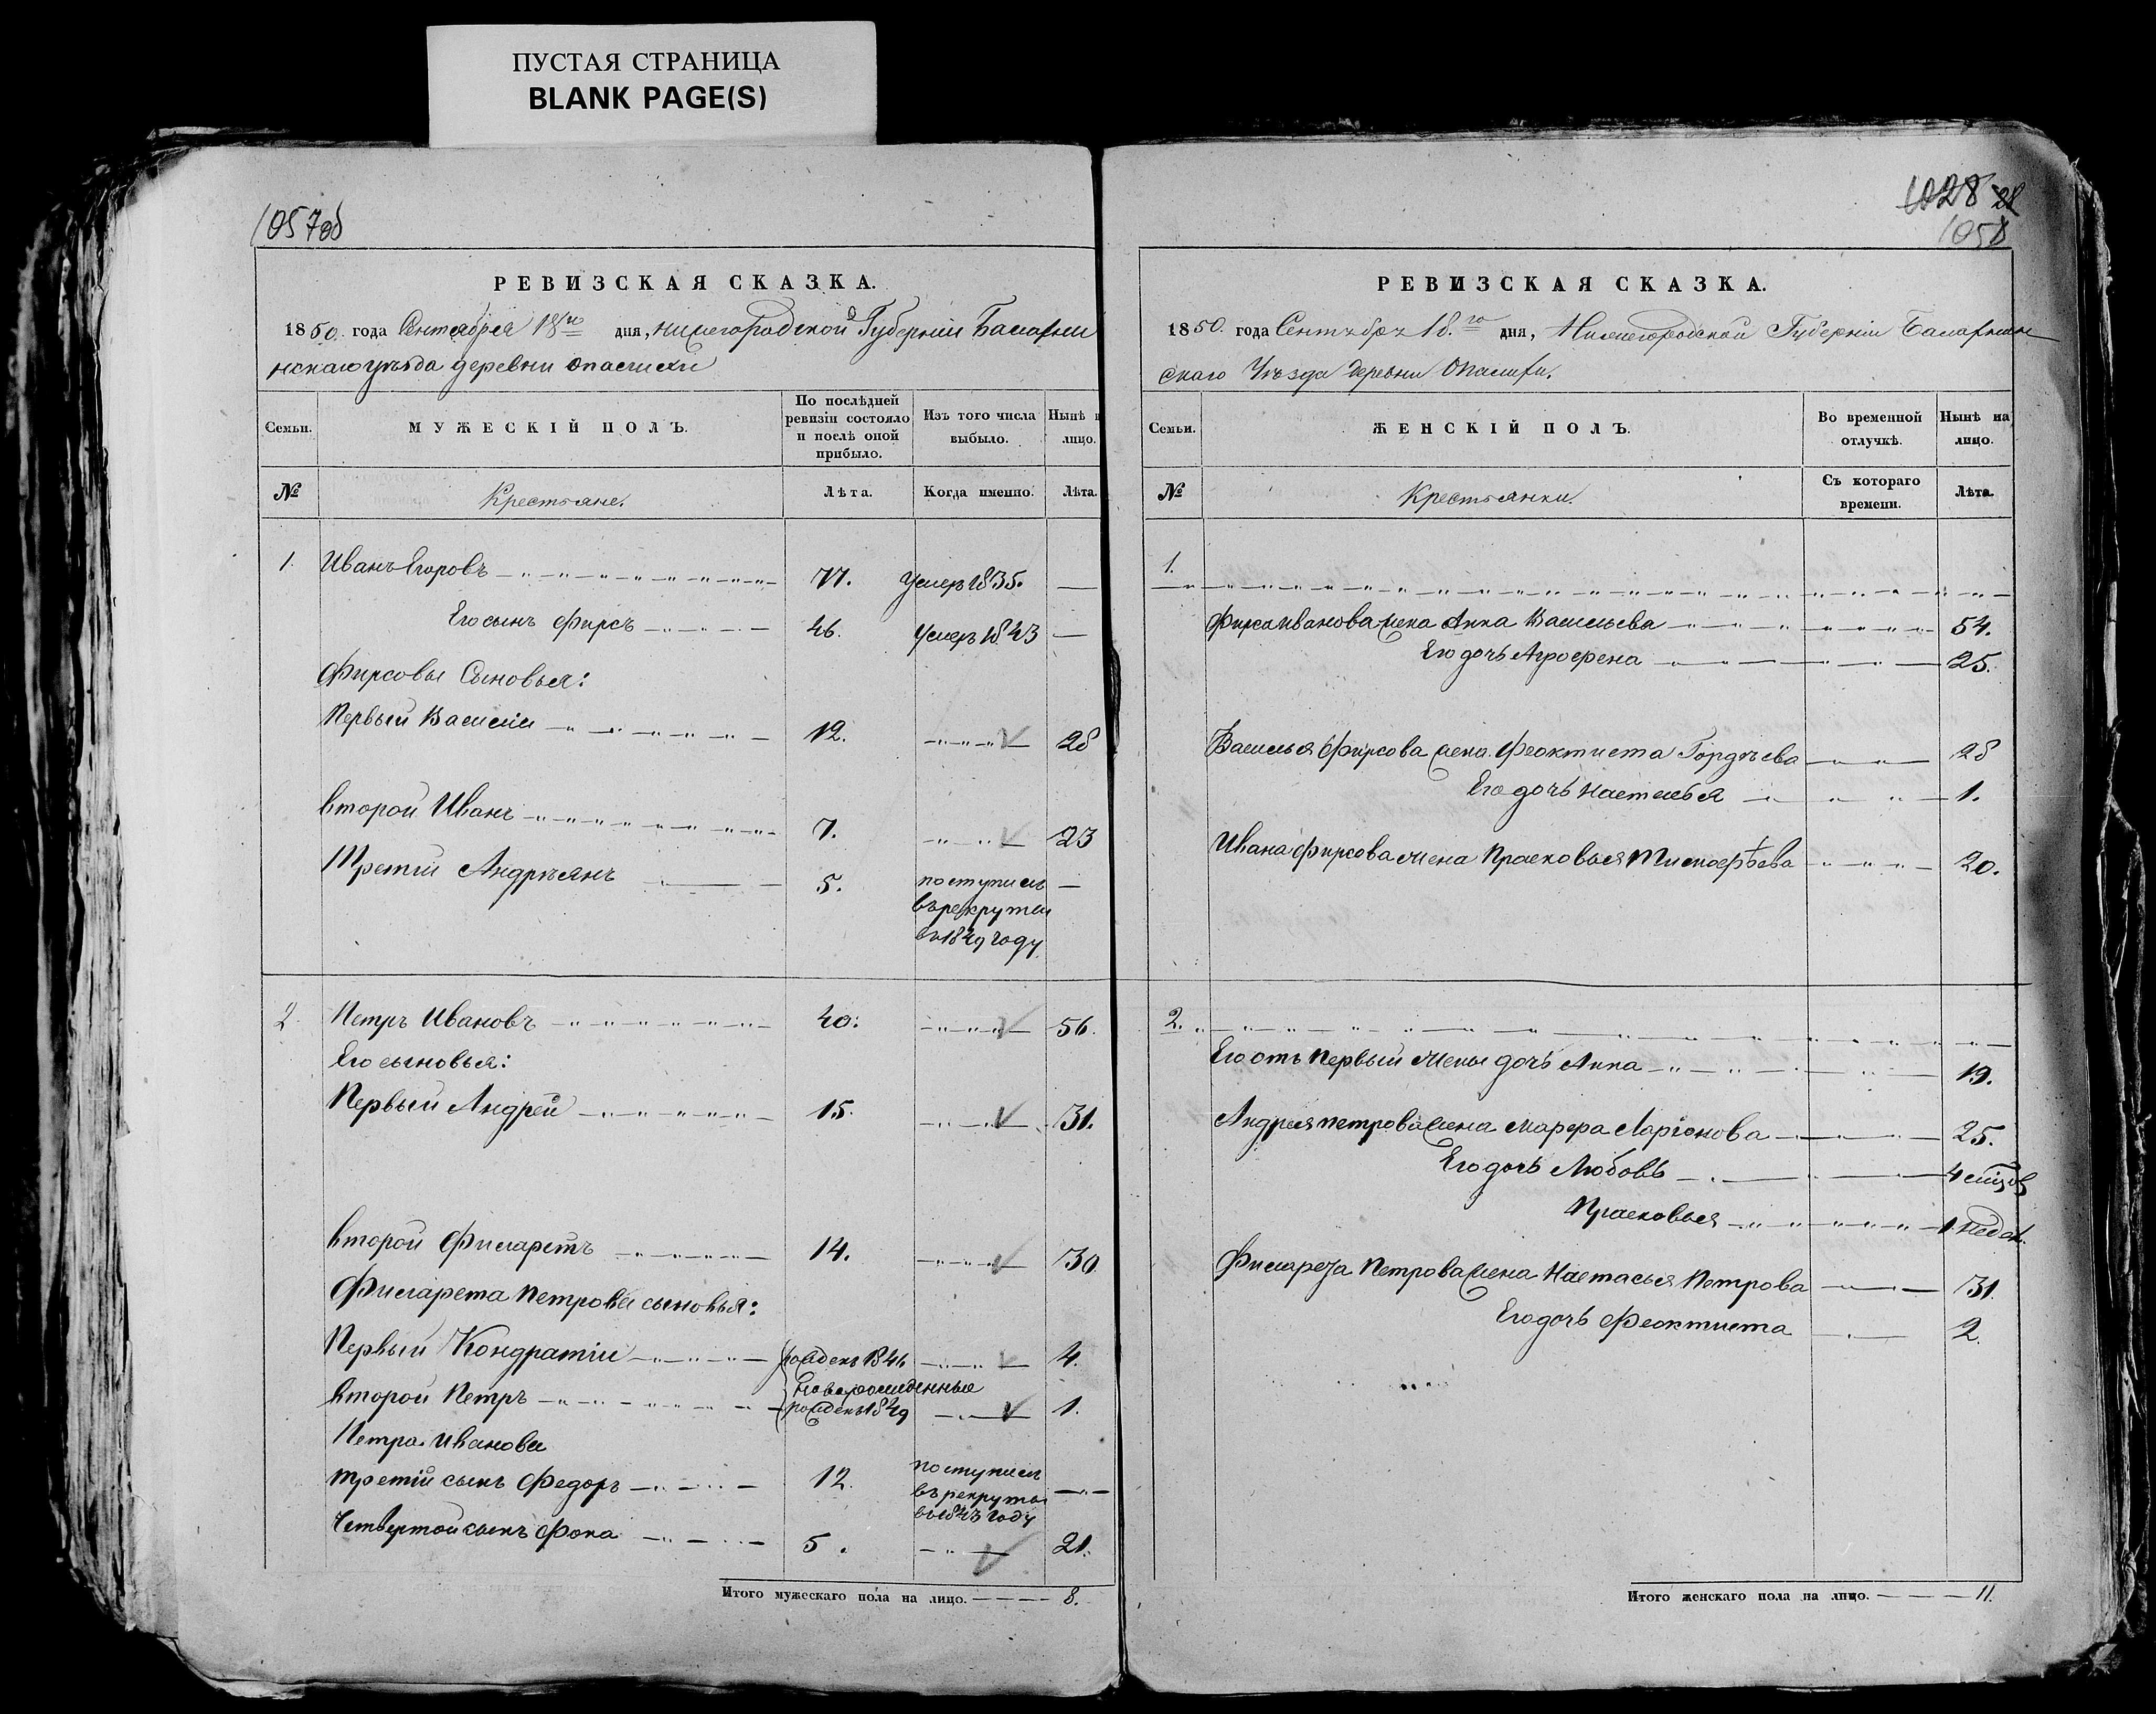 ПУСТАЯ СТРАНИЦА
BLANK PAGE(S)
1057об
РЕВИЗСКАЯ СКАЗКА.
1850. года Сентября 18го дня, нижегородской Губерніи Балахни
нскаго уѣзда деревни Опалихи
Семьи.
МУЖЕСКІЙ ПОЛЪ.
По послѣдней ревизіи состояло и послѣ оной прибыло.
Изъ того числа выбыло.
Нынѣ н лицо.
№
Крестьяне.
Лѣта.
Когда именно.
Лѣта.
1. Иванъ Егоровъ 77. Умеръ 1835. —
Его сынъ Фирсъ 46. Умеръ 1843 —
Фирсовы Сыновья:
Первый Василій 12. 28
второй Иванъ 7. 23
Третій Андреянъ 5. поступилъ —
въ рекруты
въ 1849 году
2. Петръ Ивановъ 40. 56.
Его сыновья:
Первый Андрей 15. 31.
второй Филаретъ 14. 30
Филарета Петрова сыновья:
Первый Кондратій рожденъ 1846 4.
новорожденные
второй Петръ рожденъ 1849 1.
Петра Иванова
третій сынъ Федоръ 12. поступилъ
въ рекруты
въ 1843 году
Четвертой сынъ Фока 5. 21.
Итого мужескаго пола на лицо. — — — 8.
1028 28
1058
РЕВИЗСКАЯ СКАЗКА.
1850. года Сентября 18.го дня, Нижегородской Губерніи Балахнин
скаго Уѣзда деревни Опалихи.
Семьи.
ЖЕНСКІЙ ПОЛЪ.
Во временной отлучкѣ.
Нынѣ на лицо.
№
Крестьянки.
Съ котораго времени.
Лѣта.
1.
Фирса Иванова жена Анна Васильева 54.
Его дочь Агрофена 25.
Василья Фирсова жена Феоктиста Гордѣева 28
Его дочь Настасья 1.
Ивана Фирсова жена Прасковья Тимофѣева 20.
2.
Его отъ Первый жены дочь Анна 19.
Андрея петрова жена Марфа Ларіонова 25.
Его дочь Любовь 4
Прасковья 1 недел.
Филарета Петрова жена Настасья Петрова 31.
Его дочь Феоктиста 2.
Итого женскаго пола на лицо. — — — 11.